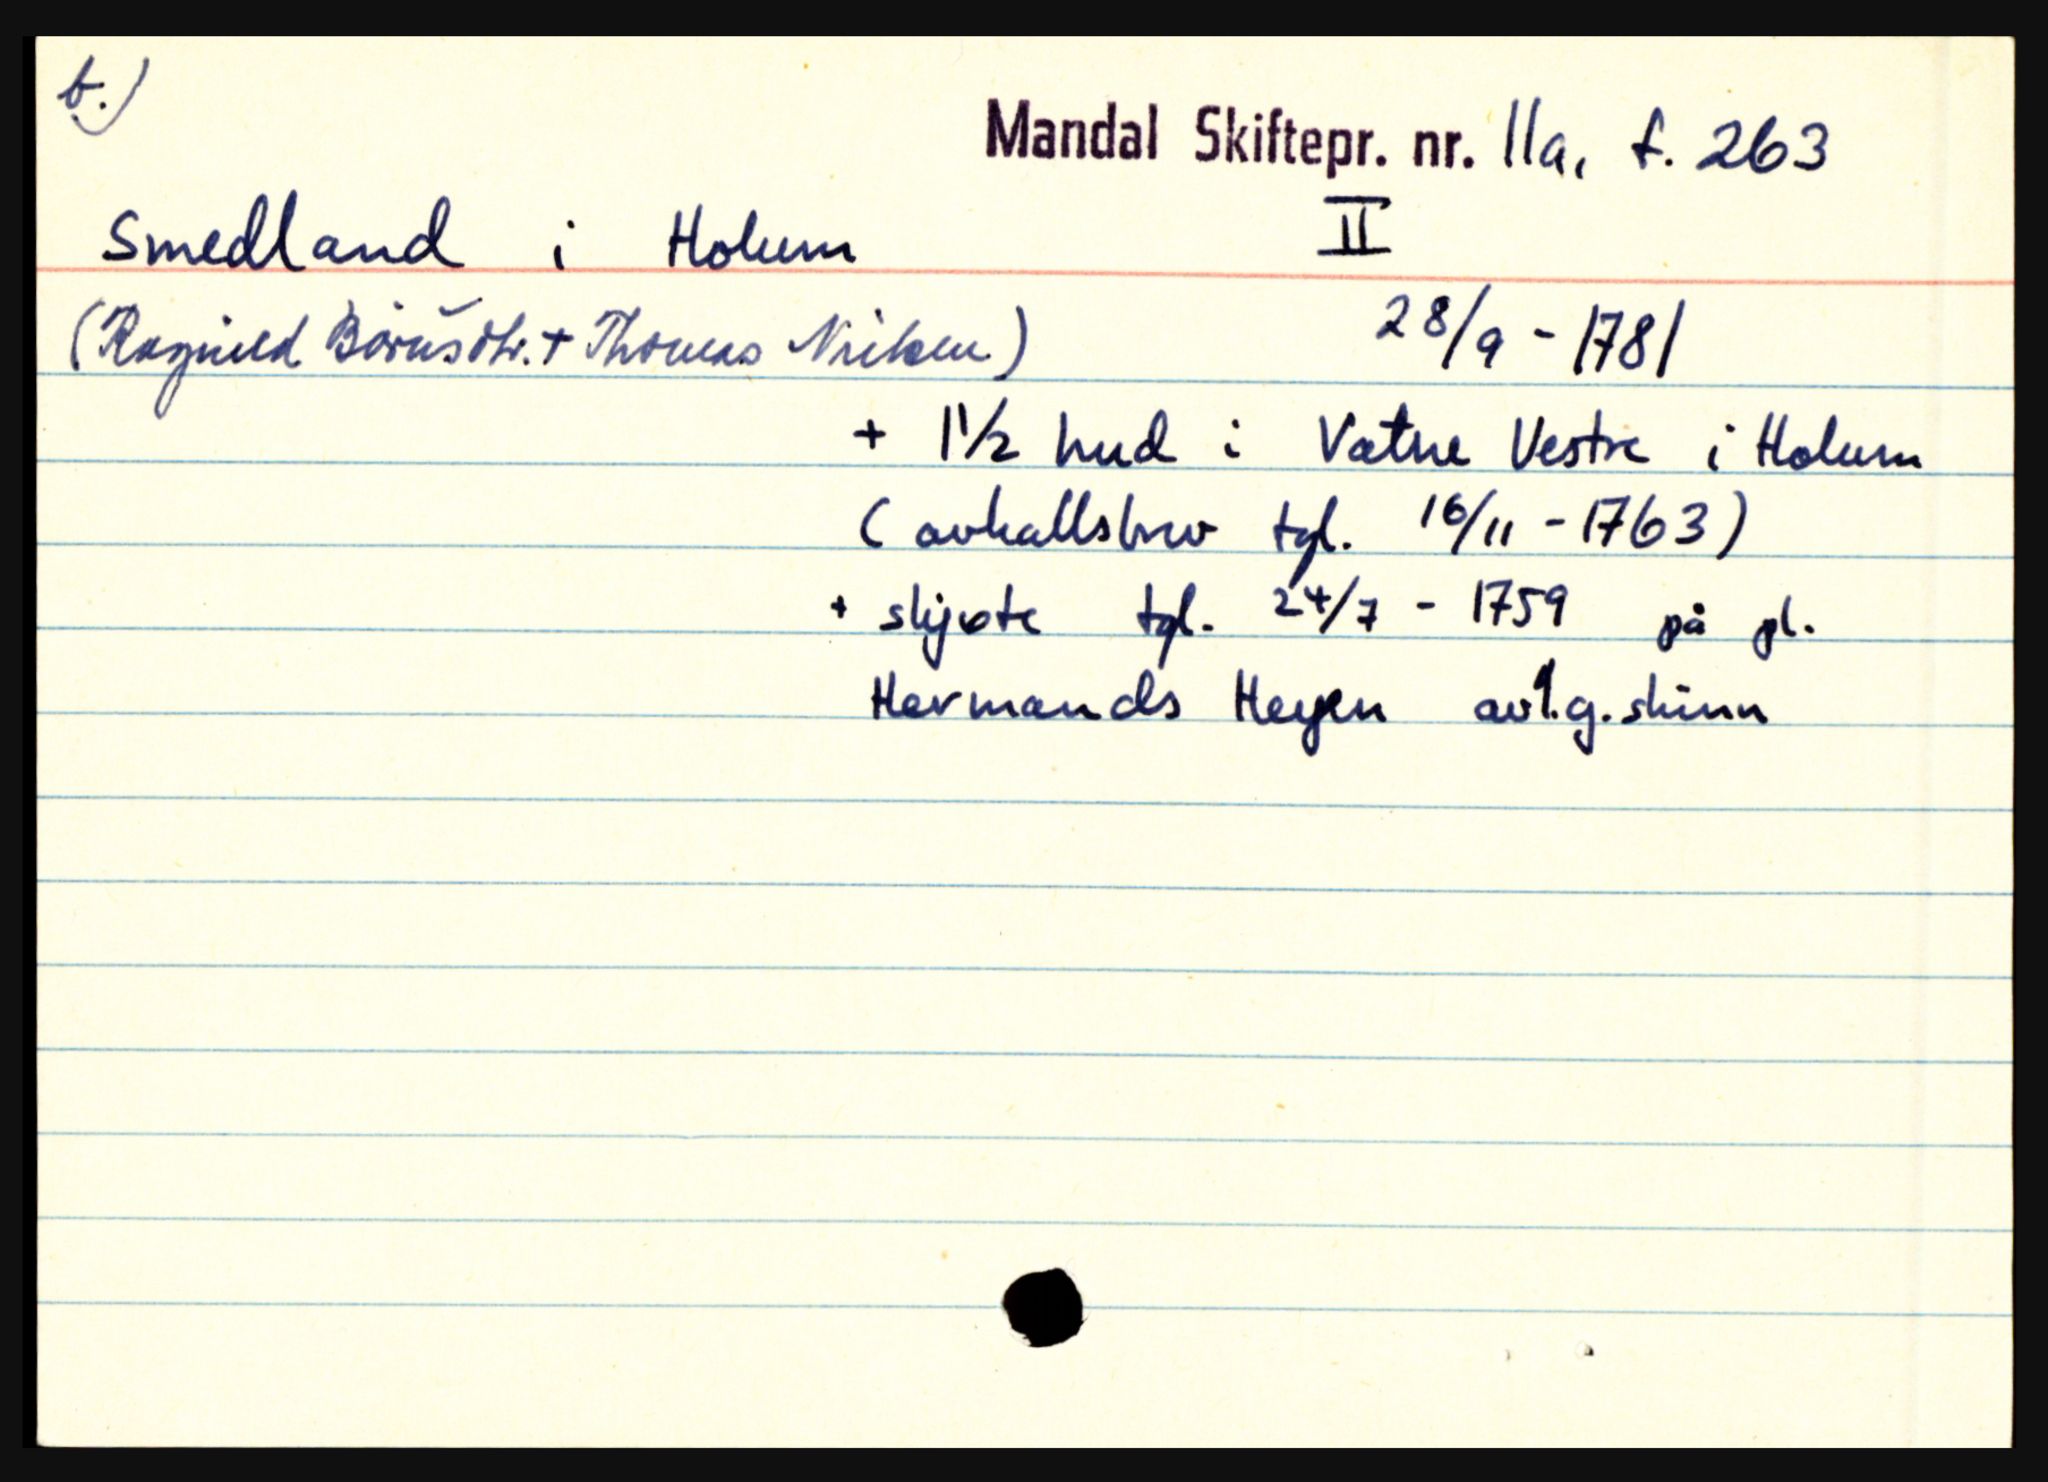 b.)
Mandal Skiftepr. nr. 11a, f. 263
Smedland i Holum II
(Ragnild Børusdtr. + Thomas Nilsen) 28/9 - 1781
+ 1 1/2 hud i Vatne Vestre i Holum
(avkallsbrev tgl. 16/11 - 1763)
+ skjøte tgl. 24/7 - 1759 på pl.
Hermands Heyen av 1. g. skinn